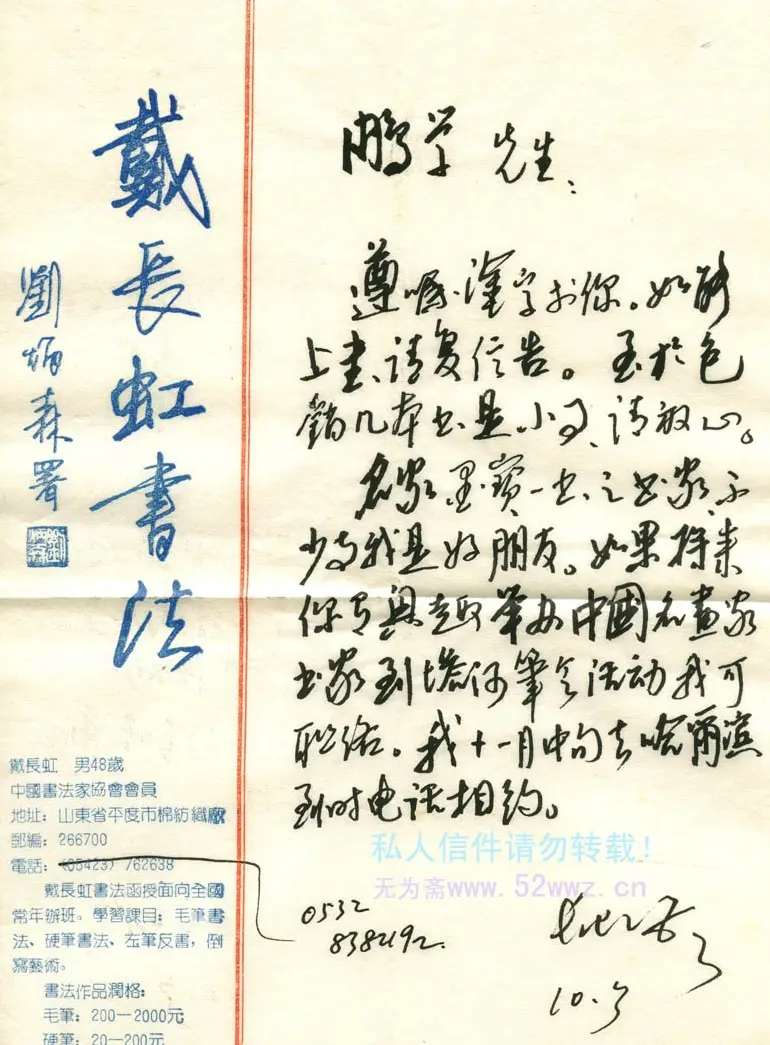 戴長虹書法
劉炳森署
戴長虹 男48歲
中國書法家協會會員
地址：山東省平度市棉紡織廠
郵編：266700
電話：(05423) 762638
戴長虹書法函授面向全國
常年辦班。學習課目：毛筆書
法、硬筆書法、左筆反書，倒
寫藝術。
書法作品潤格：
毛筆：200—2000元
硬筆：20—200元
鵬学 先生：
遵嘱，涂字于你。如能
上書，请复信告。至於包
銷几本书是小事，请放心。
名家墨寶一书之书家，不
少与我是好朋友。如果将来
你有興趣举办中國名畫家
书家到塔河筆会活动我可
联络。我十一月中旬去哈爾濱
到时电话相约。
0532
838492.
10.3
私人信件请勿转载！
无为斋www.52wwz.cn